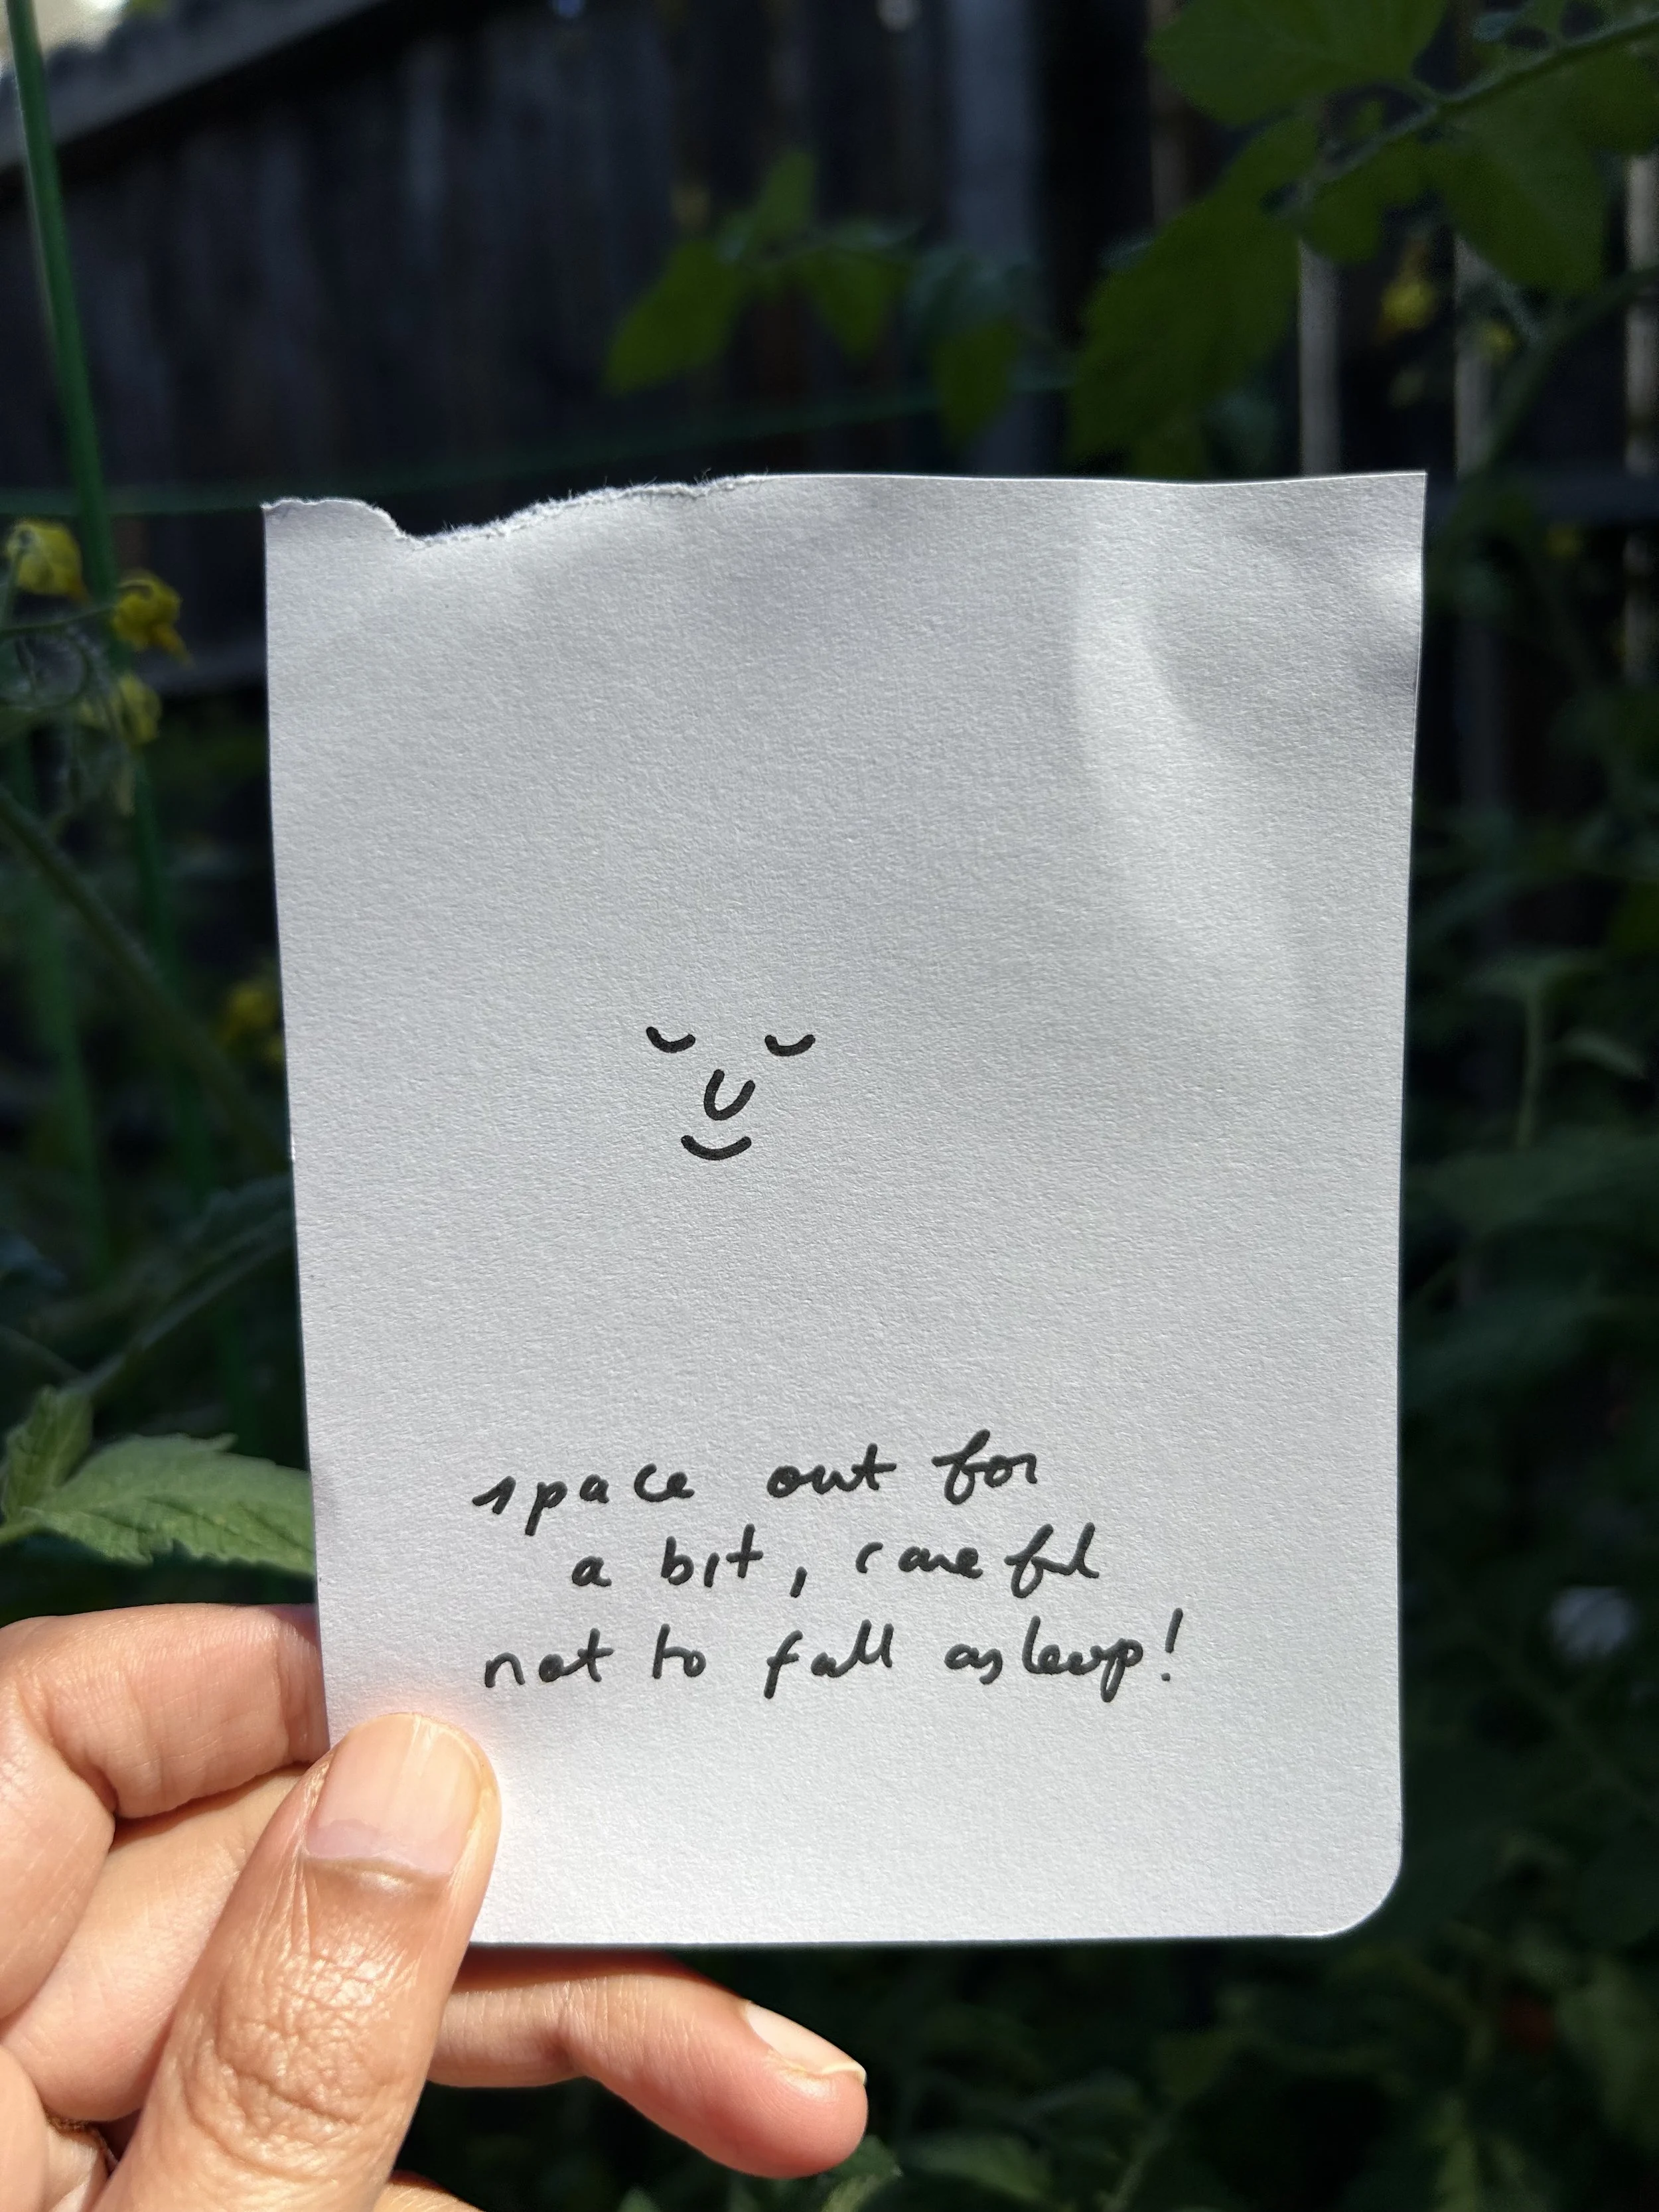 space out for
a bit, careful
not to fall asleep!